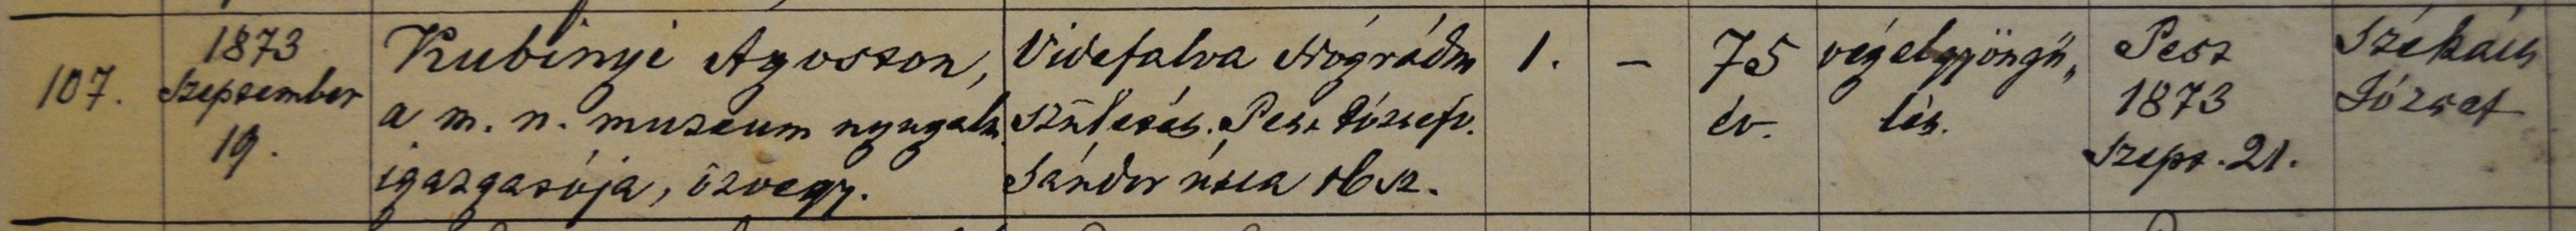 107.
1873
Szeptember
19.
Kubinyi Ágoston,
a m. n. muzeum nyugalm.
igazgatója, özvegy.
Videfalva Nógrádm
születés. Pest Józsefv.
Sándor utca 16 sz.
1.
-
75
év.
végelgyöngü„
lés.
Pest
1873
Szept. 21.
Székács
József